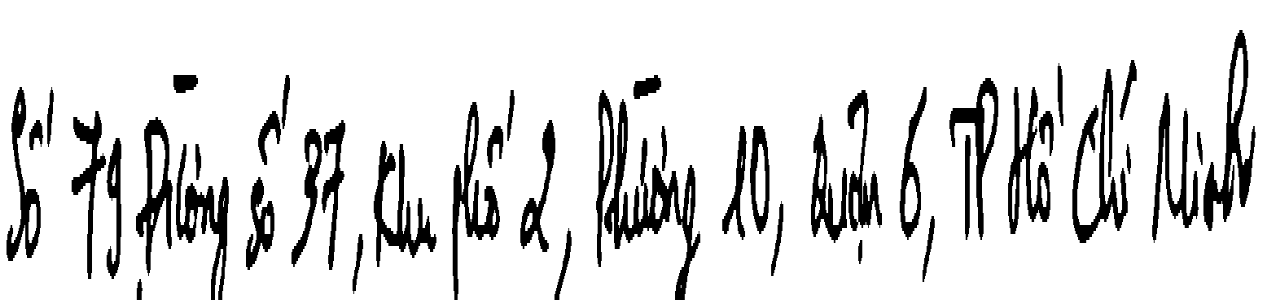 Số 79 Đường số 37, Khu phố 2, Phường 10, Quận 6, TP Hồ Chí Minh